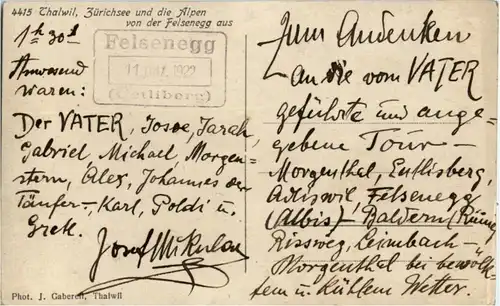 4415 Thalwil, Zürichsee und die Alpen
von der Felsenegg aus
1h 30
Anwesend
waren:
Der VATER, Josve, Sarah,
Gabriel, Michael, Morgen=
stern, Alex, Johannes der
Täufer-, Karl, Poldi u.
Gretl.
Felsenegg
1922
(Uetliberg)
Zum Andenken
an die vom VATER
geführte und ange-
gebene Tour-
Morgenthal, Entlisberg,
Adliswil, Felsenegg
(Albis)- Baldern (Ruine)
Rissweg, Leimbach-
Morgenthal bei bewölk=
tem u kühlem Wetter.
Phot. J. Gaberell, Thalwil